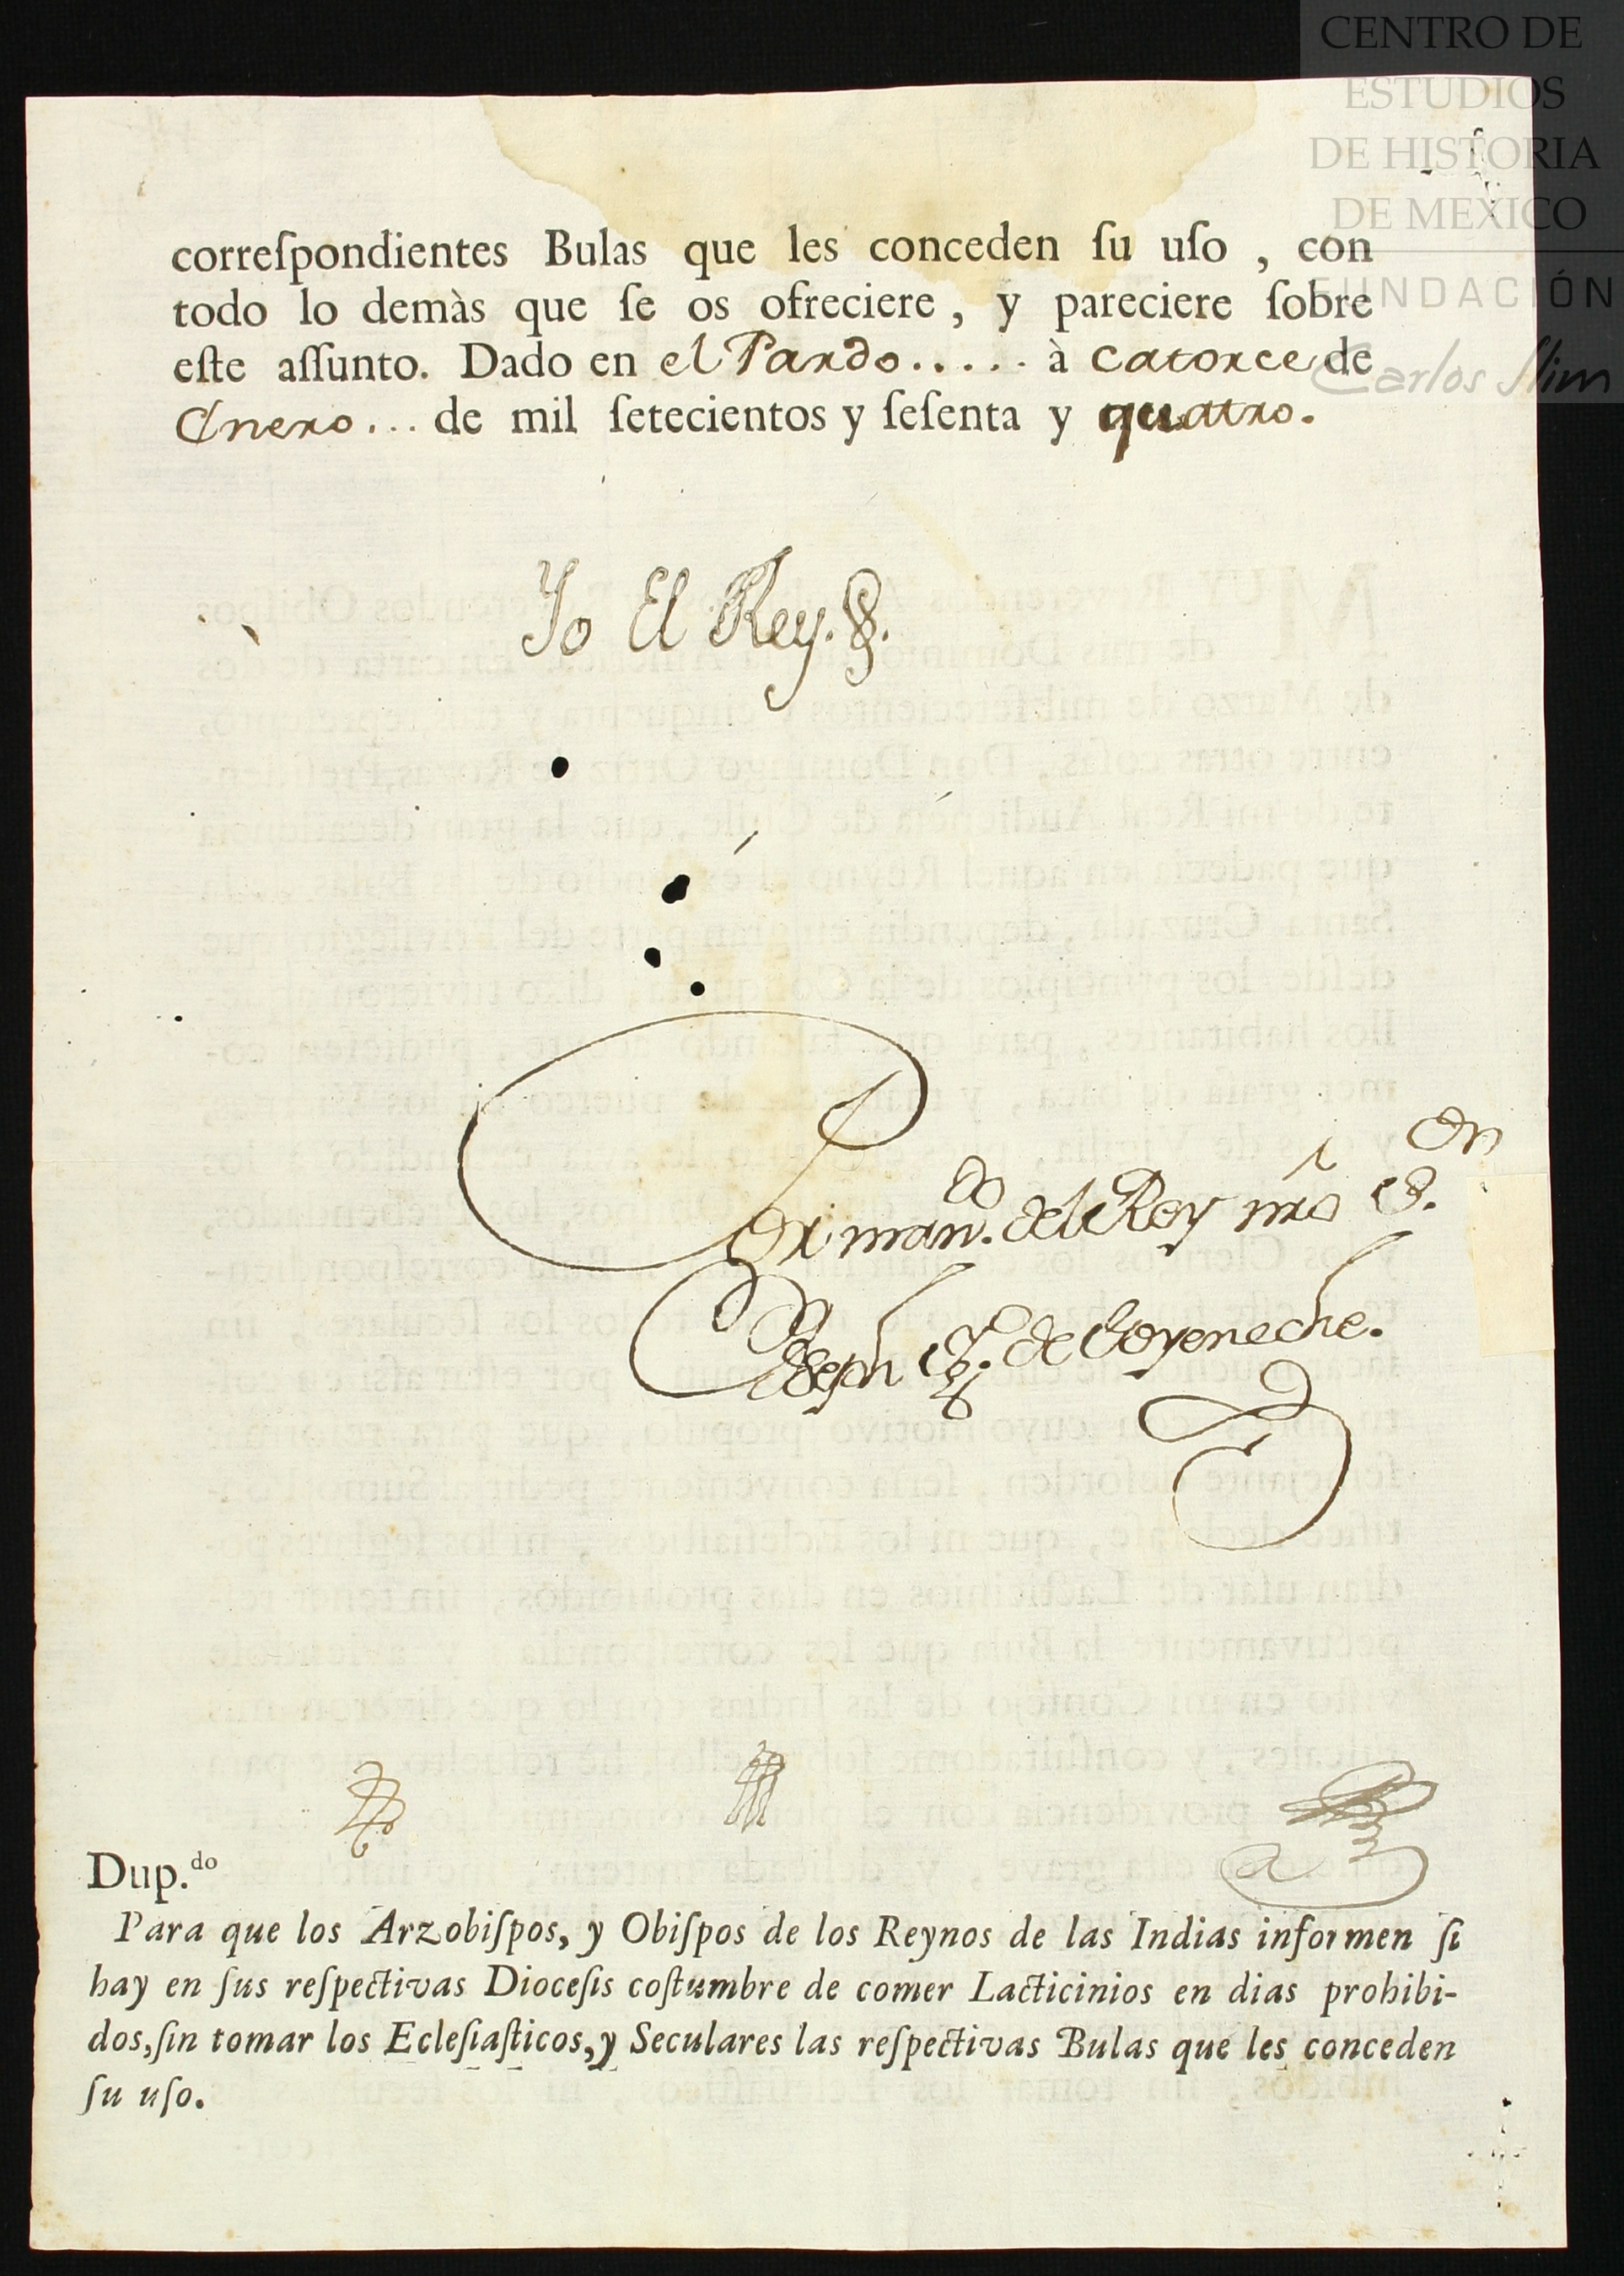 CENTRO DE
ESTUDIOS
DE HISTORIA
DE MEXICO
FUNDACIÓN
Carlos Slim
correſpondientes Bulas que les conceden ſu uſo , con
todo lo demàs que ſe os ofreciere , y pareciere ſobre
eſte aſſunto. Dado en el Pardo..... à catorce de
Enero... de mil ſetecientos y ſeſenta y quatro.
Yo El Rey.
Por man.do del Rey nro S.or
Joseph Ig. de Goyeneche.
Dup.do
Para que los Arzobiſpos, y Obiſpos de los Reynos de las Indias informen ſi
hay en ſus reſpectivas Dioceſis coſtumbre de comer Lacticinios en dias prohibi-
dos, ſin tomar los Ecleſiaſticos, y Seculares las reſpectivas Bulas que les conceden
ſu uſo.